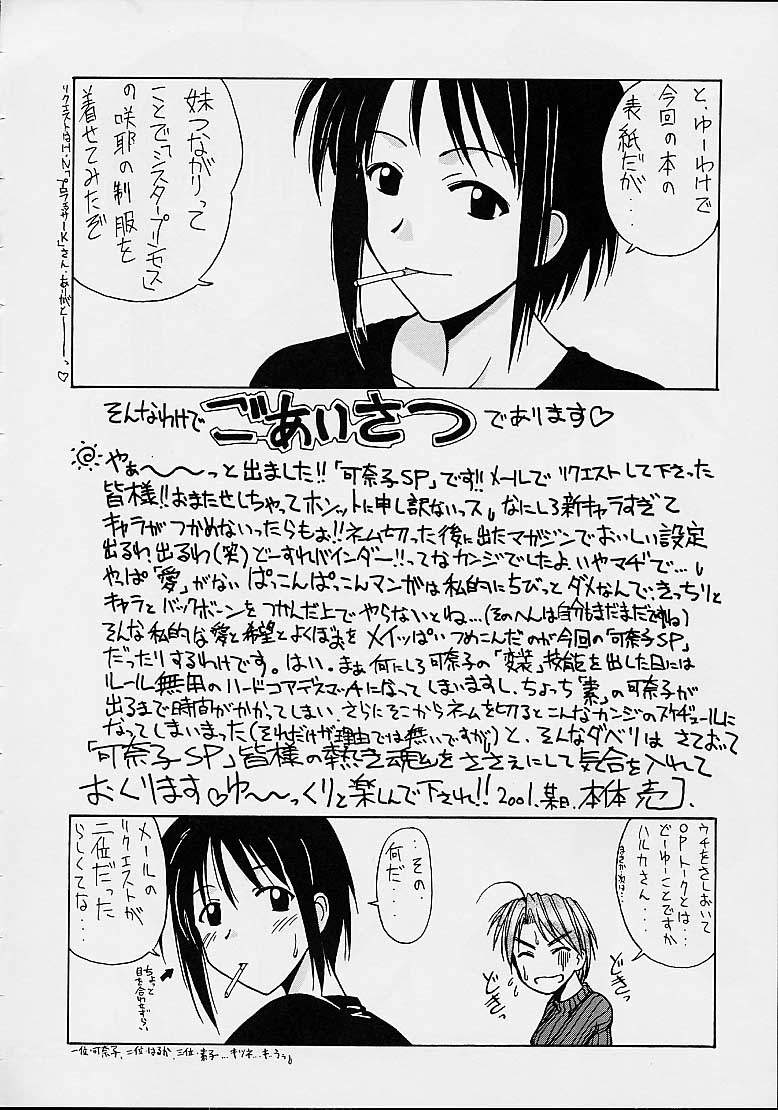 と、ゆーわけで
今回の本の
表紙だが・・・
妹つながりって
ことで「シスタープリンセス」
の咲耶の制服を
着せてみたぞ
そんなわけで
ごあいさつ
であります♡
やぁ〜〜〜っと出ました!!「可奈子SP」です!!メールでリクエストして下さった
皆様!!おまたせしちゃってホンットに申し訳ないっス。なにしろ新キャラすぎて
キャラがつかめないったらもぉ!!ネーム切った後に出たマガジンでおいしい設定
出るわ、出るわ(笑)どーすれバインダー!!ってなカンジでしたよ、いやマヂで…
やっぱ「愛」がないぱっこんぱっこんマンガは私的にちびっとダメなんで、きっちりと
キャラとバックボーンをつかんだ上でやらないとね…(そのへんは自分もまだまだですね)
そんな私的な愛と希望とよくぼぉをメイッぱいつめこんだのが今回の「可奈子SP」
だったりするわけです。はい。まぁ何にしろ可奈子の「変装」技能を出した日には
ルール無用のハードコアデスマッチになってしまいますし、ちょっち「素」の可奈子が
出るまで時間がかかってしまい、さらにそこからネームを切るとこんなカンジのスケヂュールに
なってしまいまった(それだけが理由では無いですが)と、そんなダベリはさておいて
「可奈子SP」皆様の熱き魂をささえにして気合を入れて
おくります♡ゆ〜〜っくりと楽しんで下され!!2001.某日.本体 売
ウチをさしおいて
OPトークとは・・
どーゆーことですか
ハルカさん・・・
まさかおねは・・・
・・その
何だ・・・
メールの
リクエストが
二位だった
らしくてな・・
どきっ
どきっ
ちょっと
目を合わせずらい
一位・可奈子、二位・はるか、三位・素子…キツネ…キ・うぅ